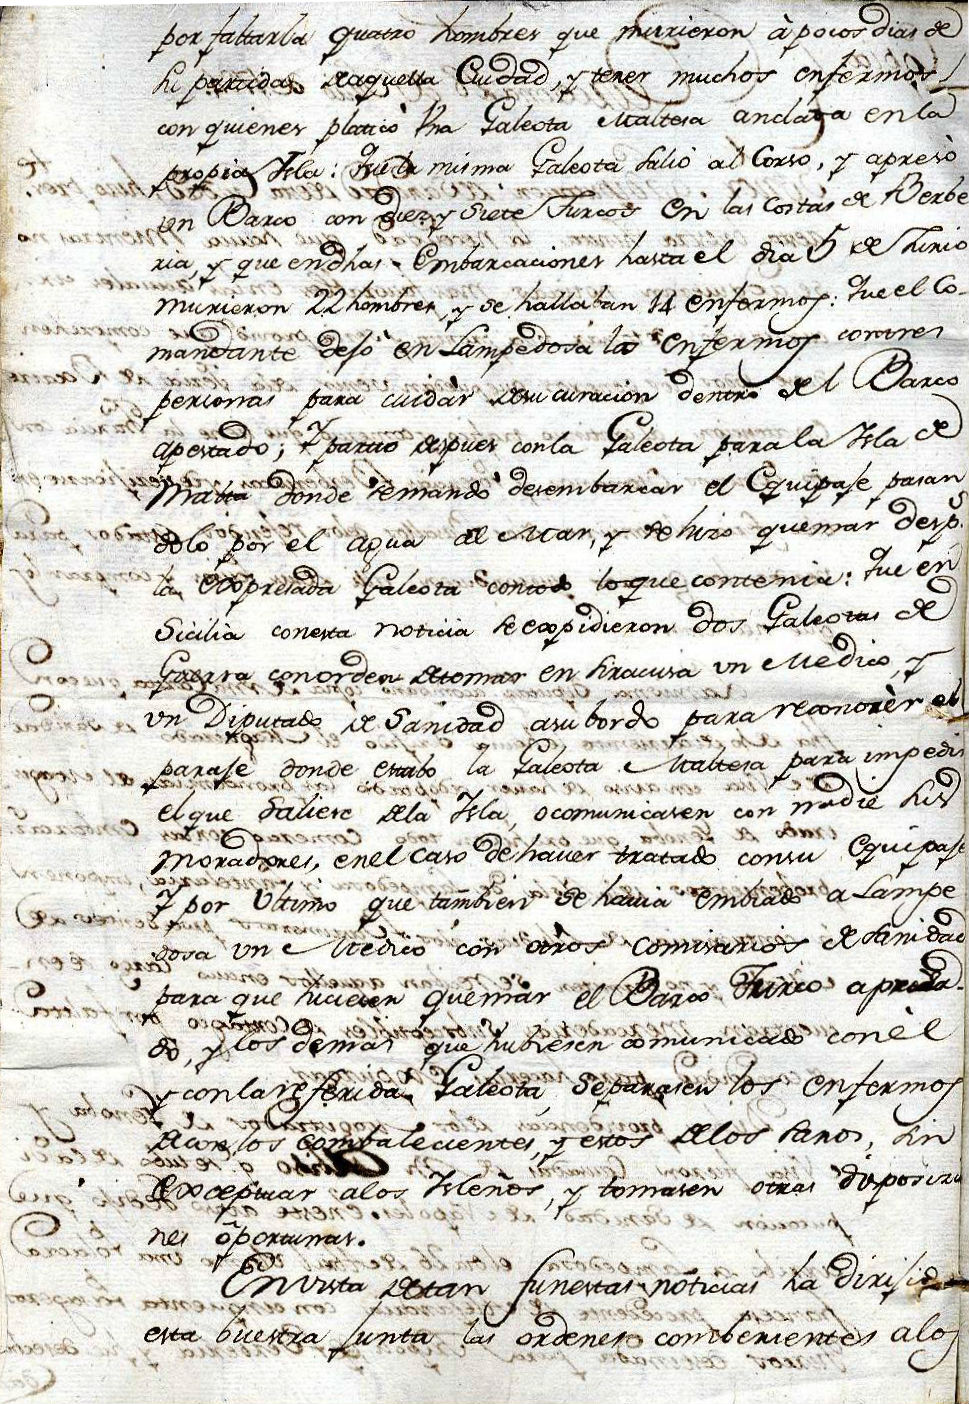 por faltarla quatro hombres que murieron à pocos dias de
su partida deaquella Ciudad, y tener muchos enfermos,
con quienes platicò Vna Galeota Maltesa anclada en la
propia Isla: Que la misma Galeota salio al Corso, y apresò
un Barco con diez y Siete Turcos en las Costas de Berbe
ria, y que en dhas Embarcaciones hasta el dia 5 de Junio
murieron 22 hombres, y se hallaban 14 enfermos: Que el Co-
mandante dejó en Lampedosa los enfermos con tres
personas para cuidar desu curacion dentro del Barco
apestado; Y partio despues conla Galeota para la Isla de
Malta donde semandó desembarcar el Equipaje pasan
dolo por el agua de Mar, y se hizo quemar desps.
la expresada Galeota contodo loque contenia: Que en
Sicilia conesta noticia se expidieron dos Galeotas de
Guerra conorden detomar en Siracusa un Medico, y
un Diputado de Sanidad asubordo para reconocèr el
paraje donde estabo la Galeota Maltesa para impedir
el que Saliese dela Isla, o comunicasen con nadie sus
moradores, enel caso de haver tratado consu Equipaje
Y por Ultimo que tambien se havia embiado a Lampe
dosa un Medico con otros comisarios de Sanidad
para que hiciesen quemar el Barco Turco apresa-
do, y los demàs que hubiesen comunicado con èl
y conla referida Galeota, Separasen los enfermos
de con los combalecientes, y estos delos sanos, sin
exceptuar alos Isleños, y tomasen otras disposicio
nes oportunas.
En vista detan funestas noticias ha dirijido
esta buestra Junta las ordenes combenientes alos